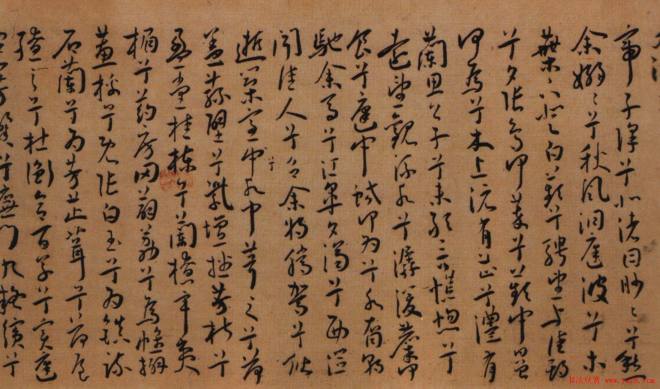 帝子降兮北渚目眇眇兮愁
余嫋嫋兮秋風洞庭波兮木
葉下登白薠兮騁望與佳期
兮夕張鳥何萃兮蘋中罾
何為兮木上沅有芷兮澧有
蘭思公子兮未敢言慌惚兮
遠望觀流水兮潺湲麋何
食兮庭中蛟何為兮水裔朝
馳余馬兮江皋夕濟兮西澨
聞佳人兮召余將騰駕兮偕
逝築室兮水中葺之兮荷
蓋蓀壁兮紫壇播芳椒兮
盈堂桂棟兮蘭橑辛夷
楣兮葯房罔薜荔兮為帷擗
蕙櫋兮既張白玉兮為鎮疏
石蘭兮為芳芷葺兮荷屋
繚之兮杜衡合百草兮實庭
建芳馨兮廡門九嶷繽兮